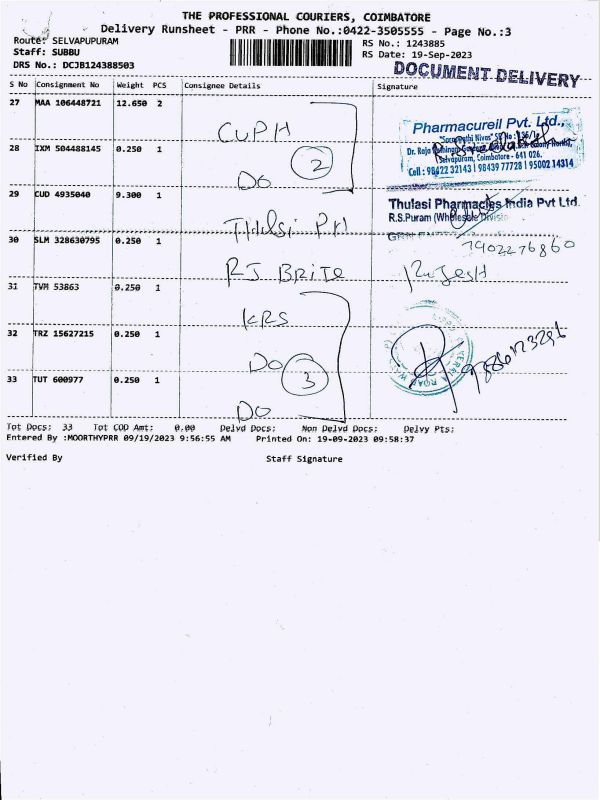 THE PROFESSIONAL COURIERS, COIMBATORE
Delivery Runsheet - PRR - Phone No.:0422-3505555 - Page No.:3
Route: SELVAPUPURAM
RS No.: 1243885
Staff: SUBBU
RS Date: 19-Sep-2023
DRS No.: DCJB124388503
DOCUMENT DELIVERY
S No Consignment No Weight PCS Consignee Details Signature
27 MAA 106448721 12.650 2 CUPH
Pharmacureil Pvt. Ltd.,
28 IXM 504488145 0.250 1 DO 2
Selvapuram, Coimbatore - 641 026.
Cell : 98422 32143 | 98439 77728 | 95002 14314
29 CUD 4935040 9.300 1 THULSI PH
Thulasi Pharmacies India Pvt Ltd.
R.S.Puram (Wholesale Division
7902276860
30 SLM 328630795 0.250 1 RJ BRITE RAJESH
31 TVM 53863 0.250 1 KRS
32 TRZ 15627215 0.250 1 DO 3
33 TUT 600977 0.250 1 DO
Tot Docs: 33 Tot COD Amt: 0.00 Delvd Docs: Non Delvd Docs: Delvy Pts:
Entered By :MOORTHYPRR 09/19/2023 9:56:55 AM Printed On: 19-09-2023 09:58:37
Verified By Staff Signature